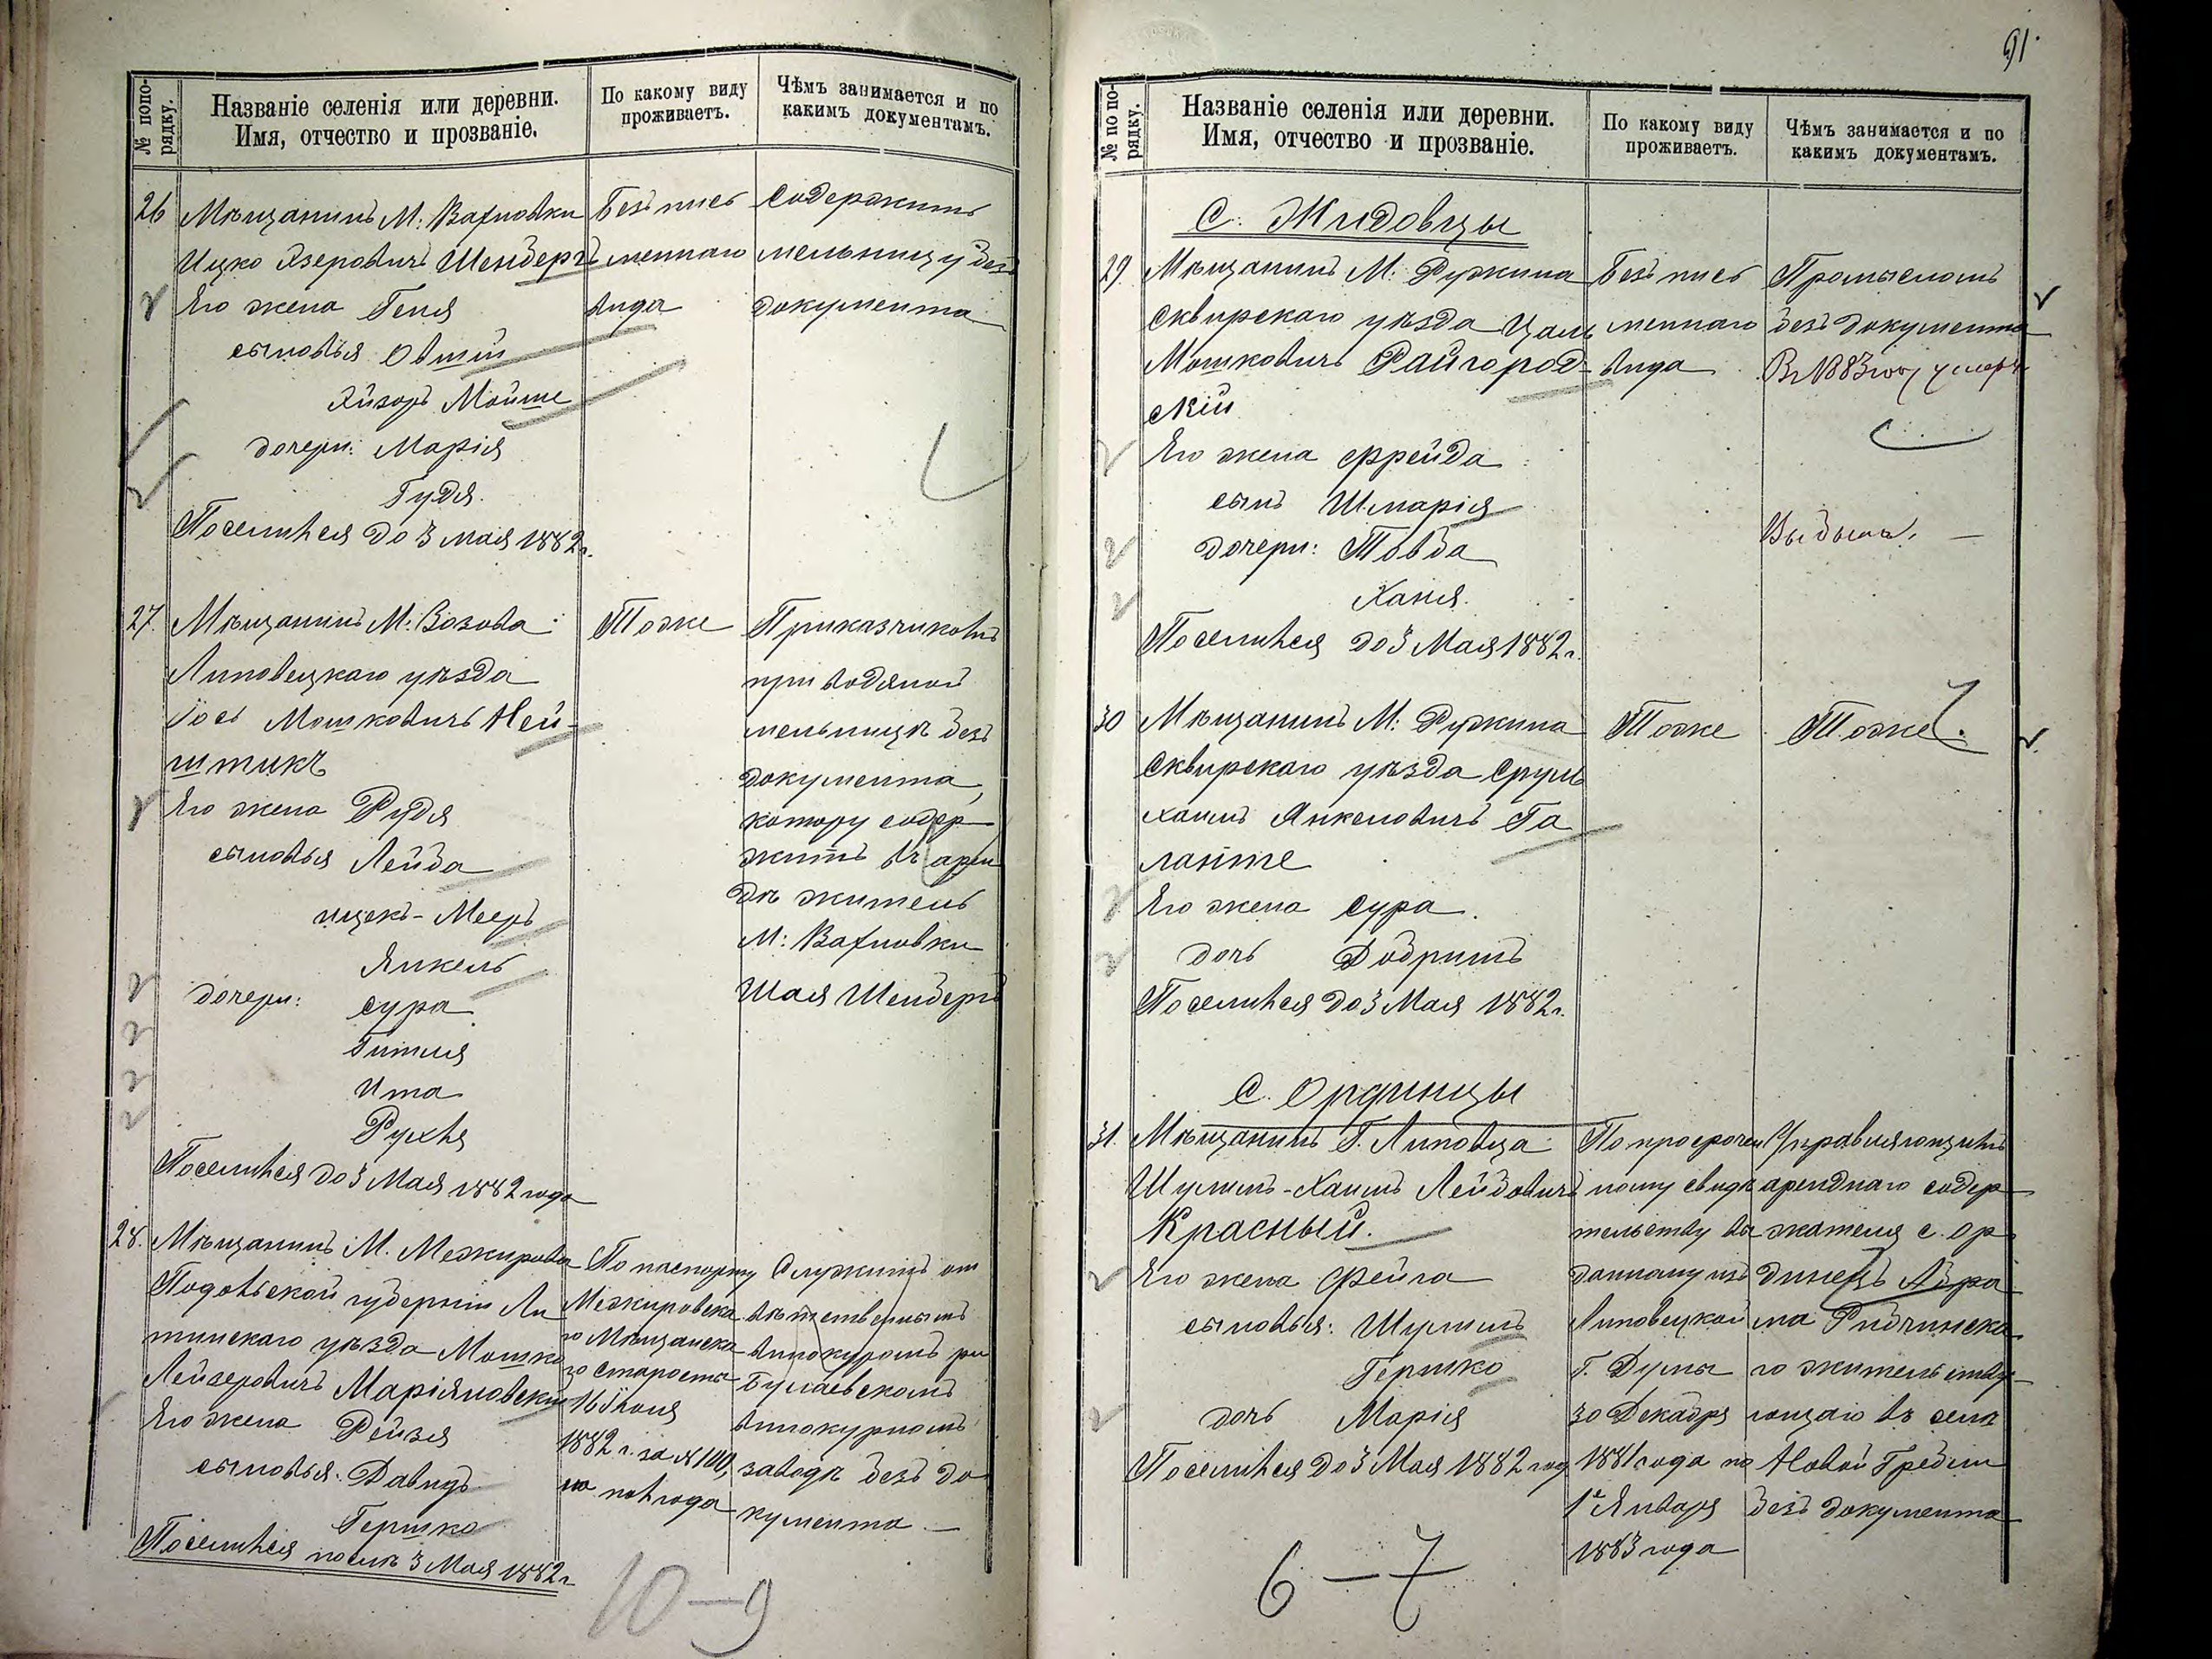 № по по-
рядку.
Названіе селенія или деревни.
Имя, отчество и прозваніе.
По какому виду
проживаетъ.
Чѣмъ занимается и по
какимъ документамъ.
26 Мѣщанинъ М: Вахновки
Ицко Азеровичъ Шендеръ
Его жена Геня
сыновья Овшій
Айзоръ Мойше
дочери: Марія
Гудя.
Поселился до 3 мая 1882 г.
Безъ пись
меннаго
вида
Содержитъ
мельницу безъ
документа
27. Мѣщанинъ М: Зозова
Липовецкаго уѣзда
Іось Мошковичъ Ней-
штикъ
Его жена Рудя
сыновья Лейба
ицекъ-Мееръ
Янкель
дочери: сура
Гитля
Ита
Рухля
Поселился до 3 Мая 1882 года
Тоже
Приказчикомъ
при водяной
мельницѣ безъ
документа,
котору содер
житъ въ арен
дѣ житель
М: Вахновки
Шая Шендеръ
28. Мѣщанинъ М. Межирова
Подольской губерніи Ли
тинскаго уѣзда Мошко
Лейзеровичъ Маріяновскій
Его жена Рейзя
сыновья: Давидъ
Гершко
Поселился послѣ 3 Мая 1882 г
По паспорту
Межировска
го Мѣщанска
го старосты
16 Іюня
1882 г. за № 100,
на полгода
Служитъ от
вѣтственнымъ
винокуромъ при
Булаевскомъ
винокурномъ
заводѣ безъ до
кумента
10—9
91.
№ по по-
рядку.
Названіе селенія или деревни.
Имя, отчество и прозваніе.
По какому виду
проживаетъ.
Чѣмъ занимается и по
какимъ документамъ.
С. Жидовцы
29. Мѣщанинъ М: Ружина
Сквирскаго уѣзда Цаль
Мошковичъ Райгород-
скій
Его жена Фрейда
сынъ Шмарія
дочери: Товба
Ханя.
Поселился до 3 Мая 1882 г.
Безъ пись
меннаго
вида
Промысломъ
безъ документа
Въ 1883 году умеръ
Выбылъ. —
30 Мѣщанинъ М: Ружина
Сквирскаго уѣзда Сруль
хаимъ Янкелевичъ Га
ланте
Его жена Сура.
дочь Добришъ
Поселился до 3 Мая 1882 г.
Тоже
Тоже.
С. Ординцы
31. Мѣщанинъ Г. Липовца
Шулимъ-Хаимъ Лейбовичъ
Красный.
Его жена Фейга
сыновья: Шулимъ
Гершко
дочь Марія
Поселился до 3 Мая 1882 год
По просрочен
ному свидѣ
тельству вы
данному изъ
Липовецкой
Г. Думы
30 Декабря
1881 года по
1е Января
1883 года
Управляющимъ
арендного содер
жателя с. Ор
динецъ Абра
ма Рабчинска
го жительству
ющаго въ селѣ
Новой Гребли
безъ документа
6—7